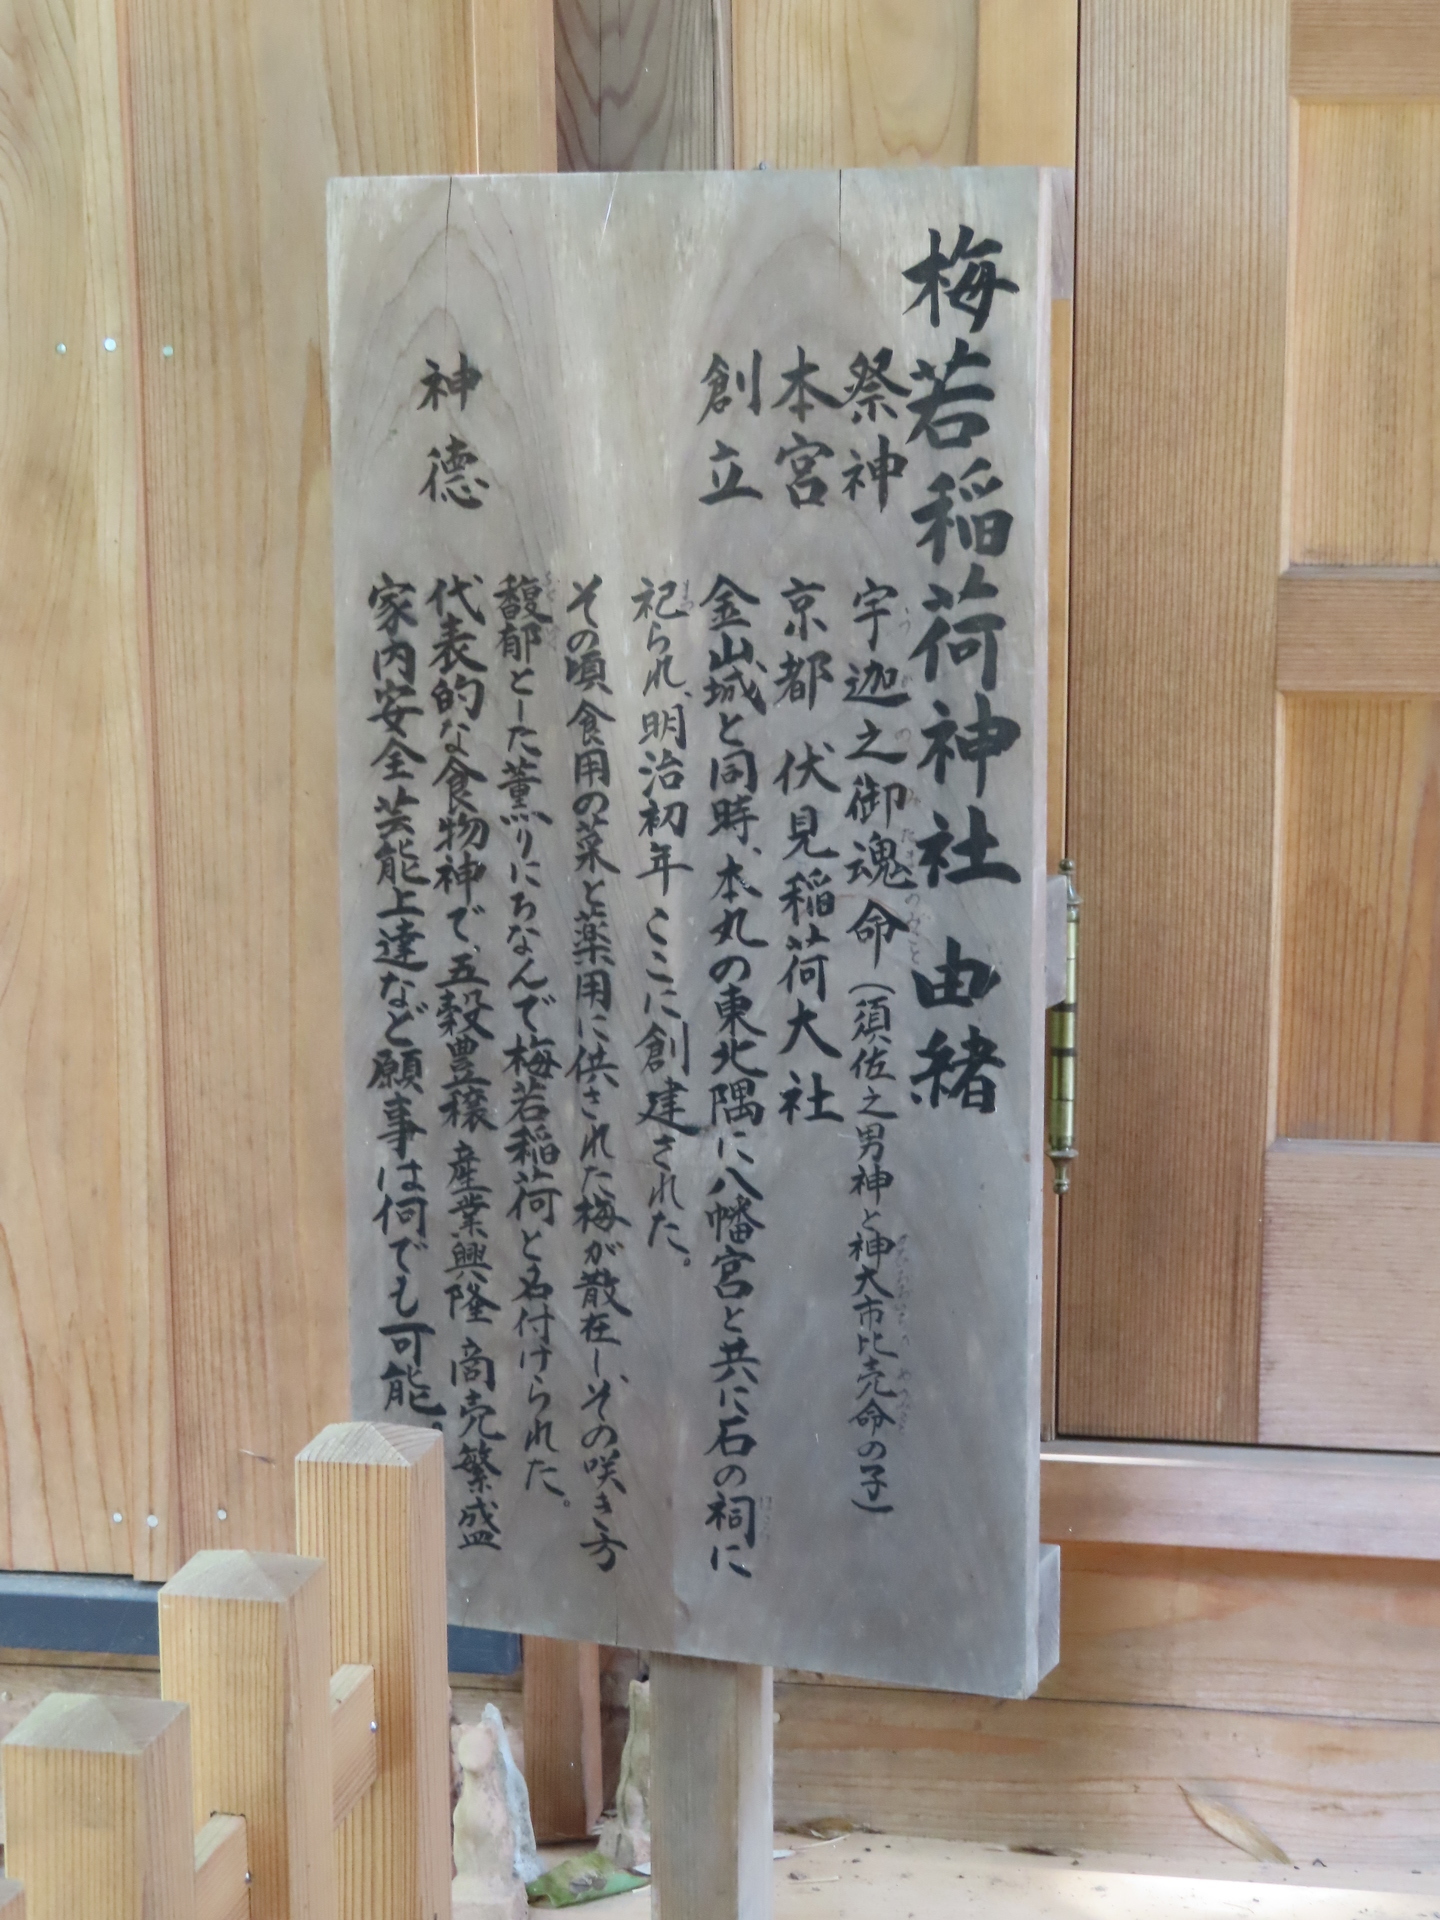 梅若稲荷神社 由緒
祭神 宇迦之御魂命(須佐之男神と神大市比売命の子)
本宮 京都 伏見稲荷大社
創立 金山城と同時、本丸の東北隅に八幡宮と共に石の祠に
祀られ、明治初年ここに創建された。
その頃食用の菜と薬用に供された梅が散在し、その咲き方
馥郁とした薫りにちなんで梅若稲荷と名付けられた。
神徳 代表的な食物神で、五穀豊穣 産業興隆 商売繁盛
家内安全芸能上達など願事は何でも可能。